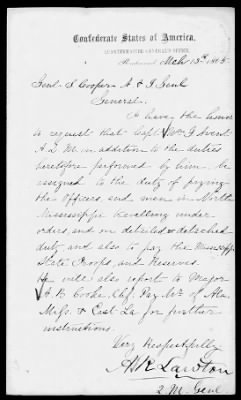 Confederate States of America,
QUARTERMASTER GENERAL'S OFFICE,
Richmond, Mch 13th 1865.
Genl. S Cooper A & I Genl
General.
I have the honor
to request that Capt Wm G Avent
A. Q. M. in addition to the duties
heretofore performed by him be
assigned to the duty of paying
the Officers and men in North
Mississippi travelling under
orders, and on detailed & detached
duty and also to pay the Mississippi
State Troops, and Reserves.
He will also report to Major
A B Cooke, Chf. Pay Mr of Ala,
Miss. & East La for further
instructions.
Very Respectfully
A R Lawton
Q M Genl